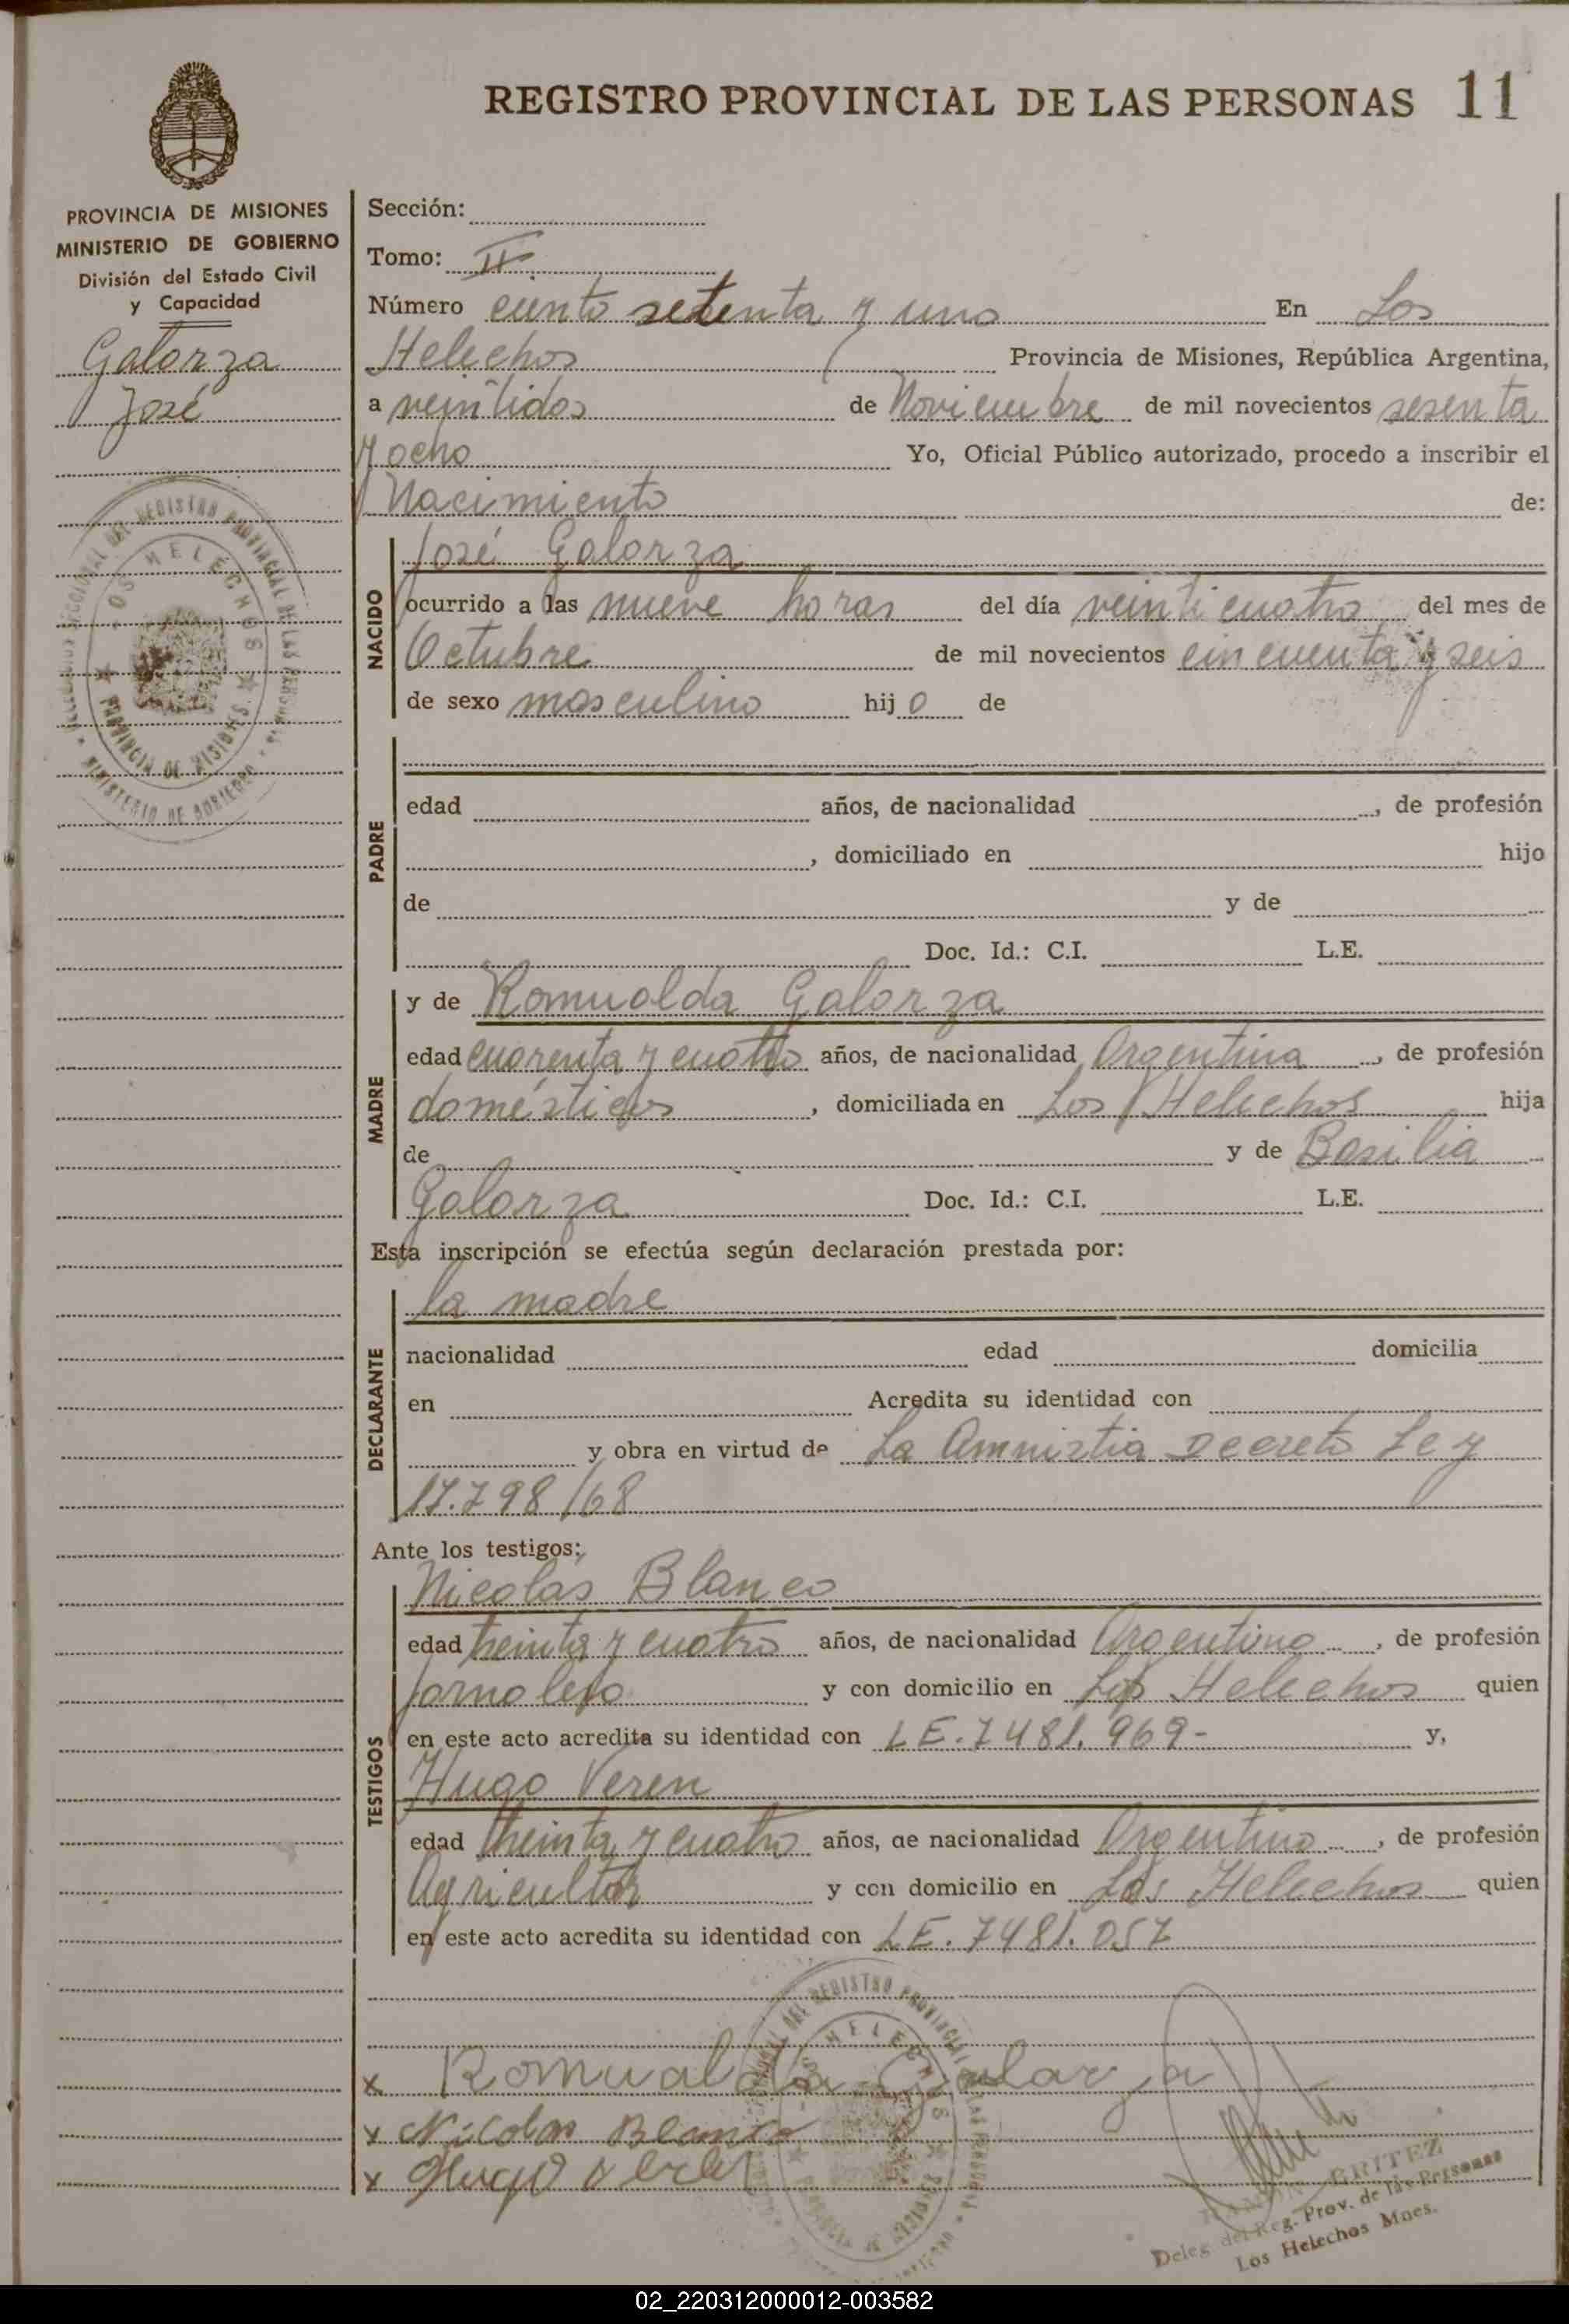 REGISTRO PROVINCIAL DE LAS PERSONAS 11
PROVINCIA DE MISIONES
MINISTERIO DE GOBIERNO
División del Estado Civil
y Capacidad
Galarza
José
Sección:
Tomo: II
Número ciento setenta y uno En Los
Helechos Provincia de Misiones, República Argentina,
a veintidos de Noviembre de mil novecientos sesenta
y ocho Yo, Oficial Público autorizado, procedo a inscribir el
Nacimiento de:
NACIDO
José Galarza
ocurrido a las nueve horas del día veinticuatro del mes de
Octubre de mil novecientos cincuenta y seis
de sexo masculino hijo de
PADRE
edad años, de nacionalidad , de profesión
, domiciliado en hijo
de y de
Doc. Id.: C.I. L.E.
MADRE
y de Romualda Galarza
edad cuarenta y cuatro años, de nacionalidad Argentina , de profesión
domésticos , domiciliada en Los Helechos hija
de y de Basilia
Galarza Doc. Id.: C.I. L.E.
Esta inscripción se efectúa según declaración prestada por:
DECLARANTE
la madre
nacionalidad edad domicilia
en Acredita su identidad con
y obra en virtud de La Amnistia Decreto Ley
17.798/68
Ante los testigos:
TESTIGOS
Nicolás Blanco
edad treinta y cuatro años, de nacionalidad Argentino , de profesión
Jornalero y con domicilio en Los Helechos quien
en este acto acredita su identidad con LE. 7481.969- y,
Hugo Veren
edad treinta y cuatro años, de nacionalidad Argentino , de profesión
Agricultor y con domicilio en Los Helechos quien
en este acto acredita su identidad con LE. 7481.057
x Romualda Galarza
x Nicolas Blanco
x Hugo Veren
RAMON BRITEZ
Deleg. del Reg. Prov. de las Personas
Los Helechos Mnes.
02_220312000012-003582